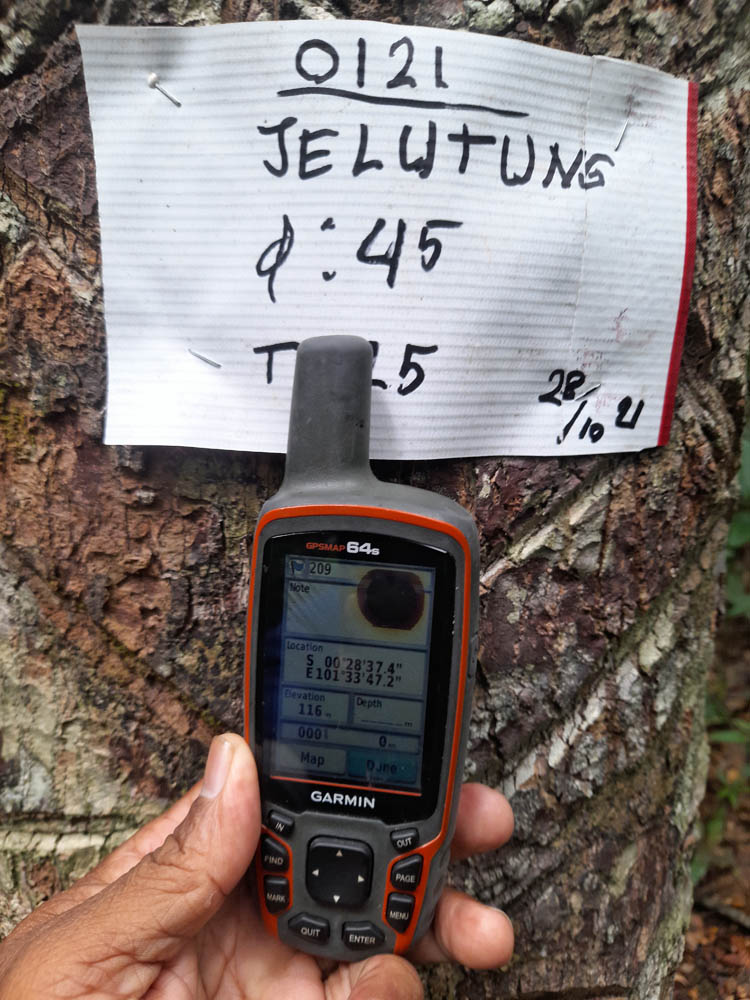 0121
JELUTUNG
φ: 45
T 25
28/10 21
GPSMAP 64s
209
Note
Location
S 00°28'37.4"
E101°33'47.2"
Elevation
Depth
116 m
_____ m
000°
0 m
Map
Done
GARMIN
IN
OUT
FIND
PAGE
MARK
MENU
QUIT
ENTER